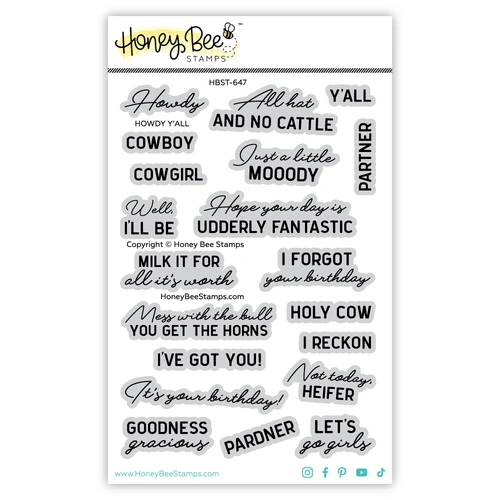 Honey Bee
STAMPS
™
HBST-647
Howdy
HOWDY Y'ALL
All hat
AND NO CATTLE
Y'ALL
COWBOY
PARTNER
Just a little
MOOODY
COWGIRL
Well,
I'LL BE
Hope your day is
UDDERLY FANTASTIC
Copyright © Honey Bee Stamps
MILK IT FOR
all it's worth
I FORGOT
your birthday
HoneyBeeStamps.com
Mess with the bull
YOU GET THE HORNS
HOLY COW
I RECKON
I'VE GOT YOU!
Not today,
HEIFER
It's your birthday!
GOODNESS
gracious
PARDNER
LET'S
go girls
www.HoneyBeeStamps.com